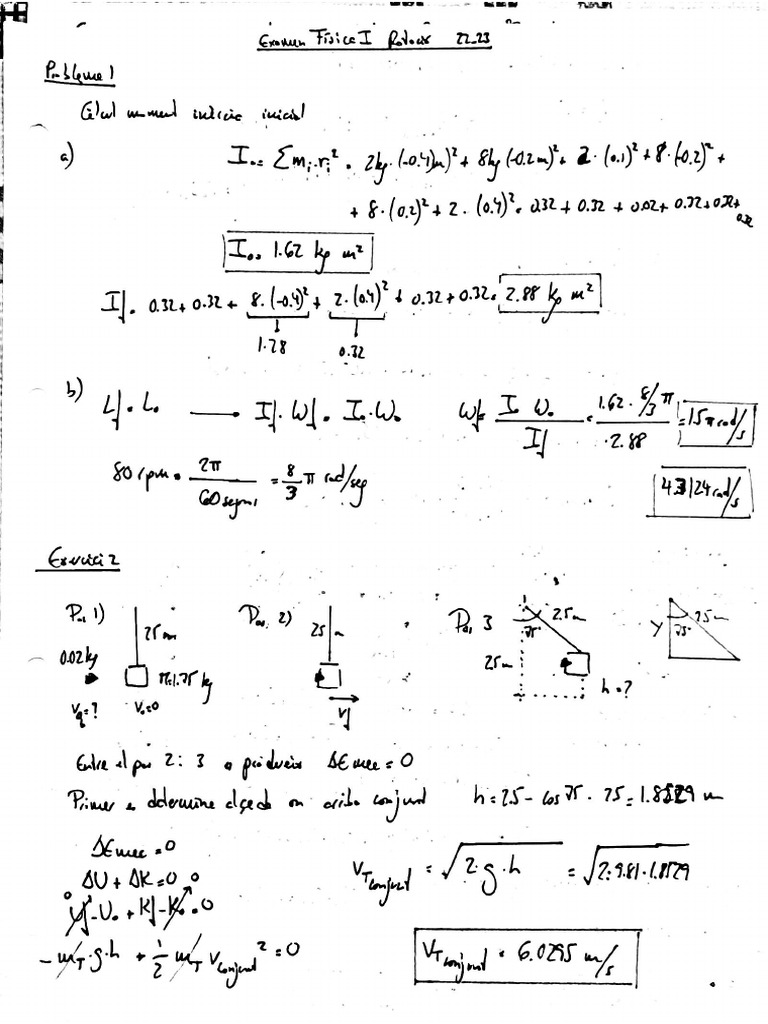 Examen Física I Retocs 22_23
Problema 1
Càlcul moment inèrcia inicial
a) I₀ = ∑ mᵢ·rᵢ² = 2kg·(-0.4m)² + 8kg(-0.2m)² + 2·(0.1)² + 8·(-0.2)² +
+ 8·(0.2)² + 2·(0.4)² = 0.32 + 0.32 + 0.02 + 0.32 + 0.32 + 0.32
I₀ = 1.62 kg m²
If = 0.32 + 0.32 + 8·(-0.4)² + 2·(0.4)² + 0.32 + 0.32 = 2.88 kg m²
1.28 0.32
b) Lf = L₀ → If·Wf = I₀·W₀ Wf = I₀ W₀ / If = 1.62 · 8/3 π / 2.88 = 1.5 π rad/s
80 rpm = 2π / 60 segons = 8/3 π rad/seg
43/24 rad/s
Exercici 2
Pas 1) 2.5 m 0.02 kg M=1.75 kg Vq=? V₀=0
Pas 2) 2.5 m Vf
Pas 3 75° 2.5 m 2.5 m h=?
y 75° 2.5 m
Entre el pas 2 i 3 es produeix ΔE mec = 0
Primer es determina alçada on arriba conjunt h = 2.5 - cos 75 · 2.5 = 1.8529 m
ΔE mec = 0
ΔU + ΔK = 0
0 Uf - U₀ + Kf - K₀ 0 = 0
- mT·g·h + 1/2 mT V conjunt² = 0
VT conjunt = √2·g·h = √2·9.81·1.8529
VT conjunt = 6.0295 m/s